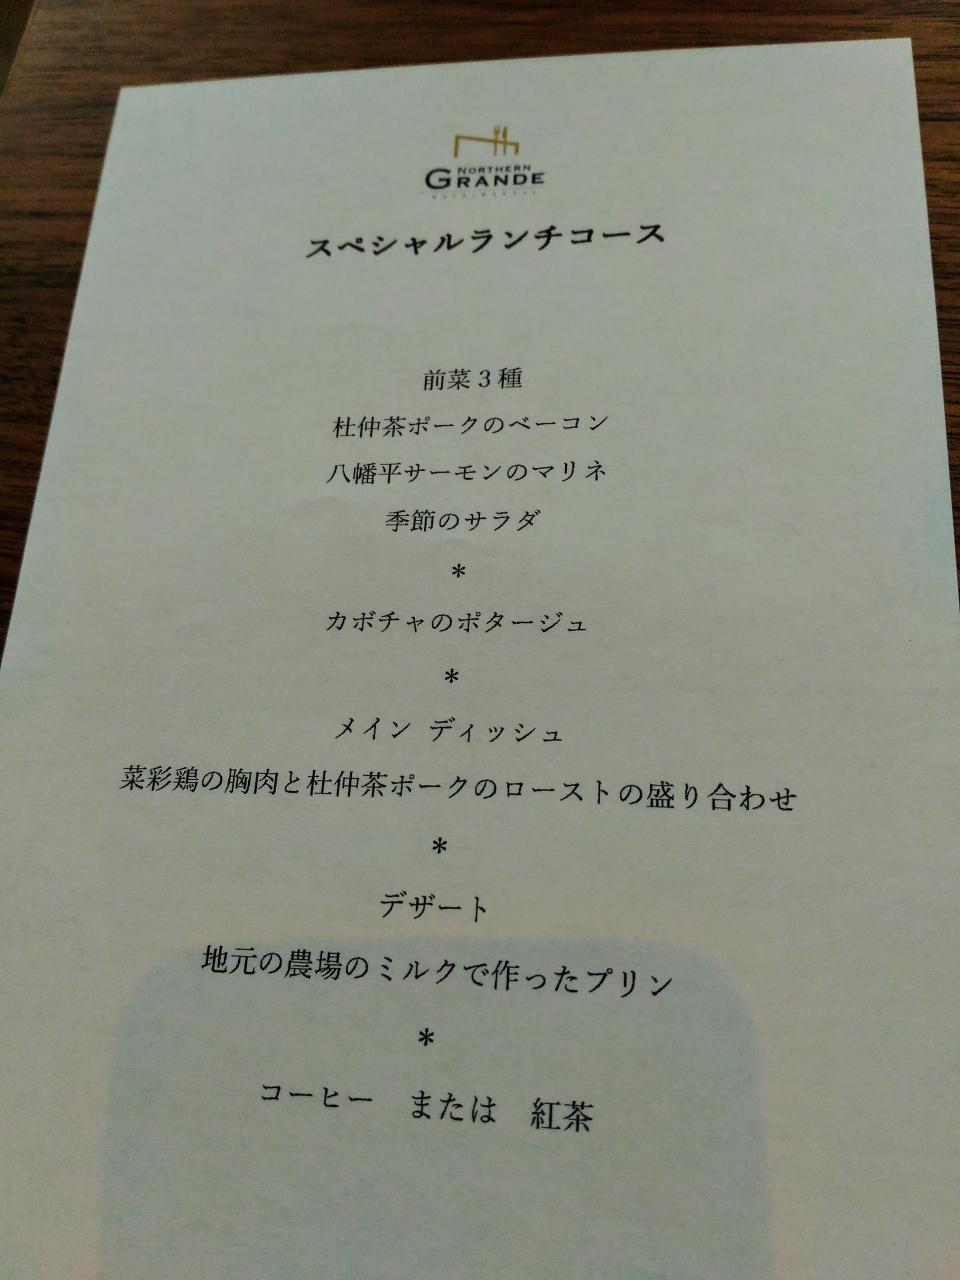 NORTHERN
GRANDE
スペシャルランチコース
前菜3種
杜仲茶ポークのベーコン
八幡平サーモンのマリネ
季節のサラダ
*
カボチャのポタージュ
*
メイン ディッシュ
菜彩鶏の胸肉と杜仲茶ポークのローストの盛り合わせ
*
デザート
地元の農場のミルクで作ったプリン
*
コーヒー　または　紅茶